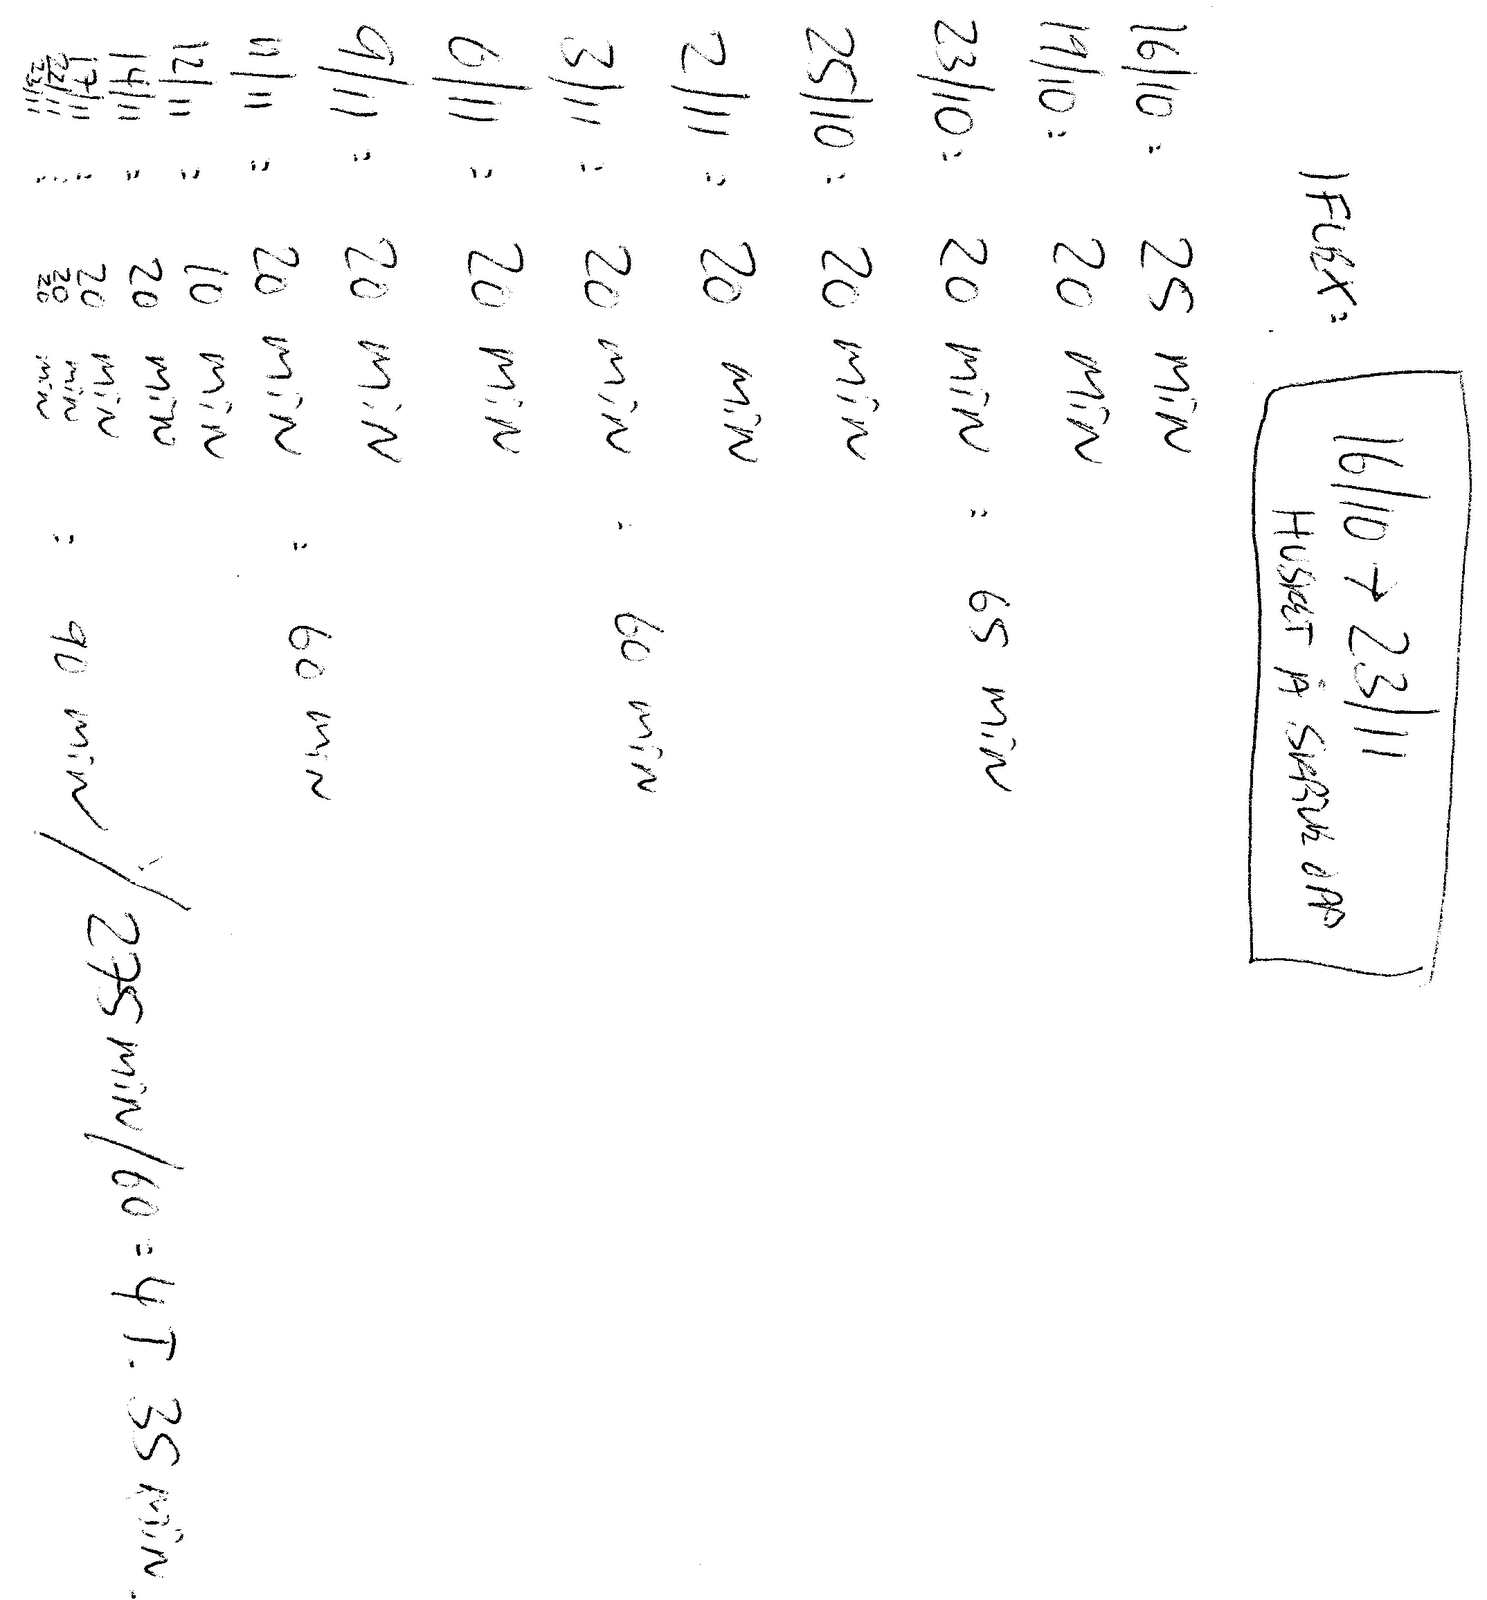 FLEX: 16/10 → 23/11
HUSKET Å SKRIVE OPP
16/10: 25 min
19/10: 20 min
23/10: 20 min = 65 min
25/10: 20 min
2/11: 20 min
3/11: 20 min = 60 min
6/11: 20 min
9/11: 20 min
11/11: 20 min = 60 min
12/11: 10 min
14/11: 20 min
17/11: 20 min
22/11: 20 min
23/11: 20 min = 90 min / 275 min/60 = 4 T. 35 min.